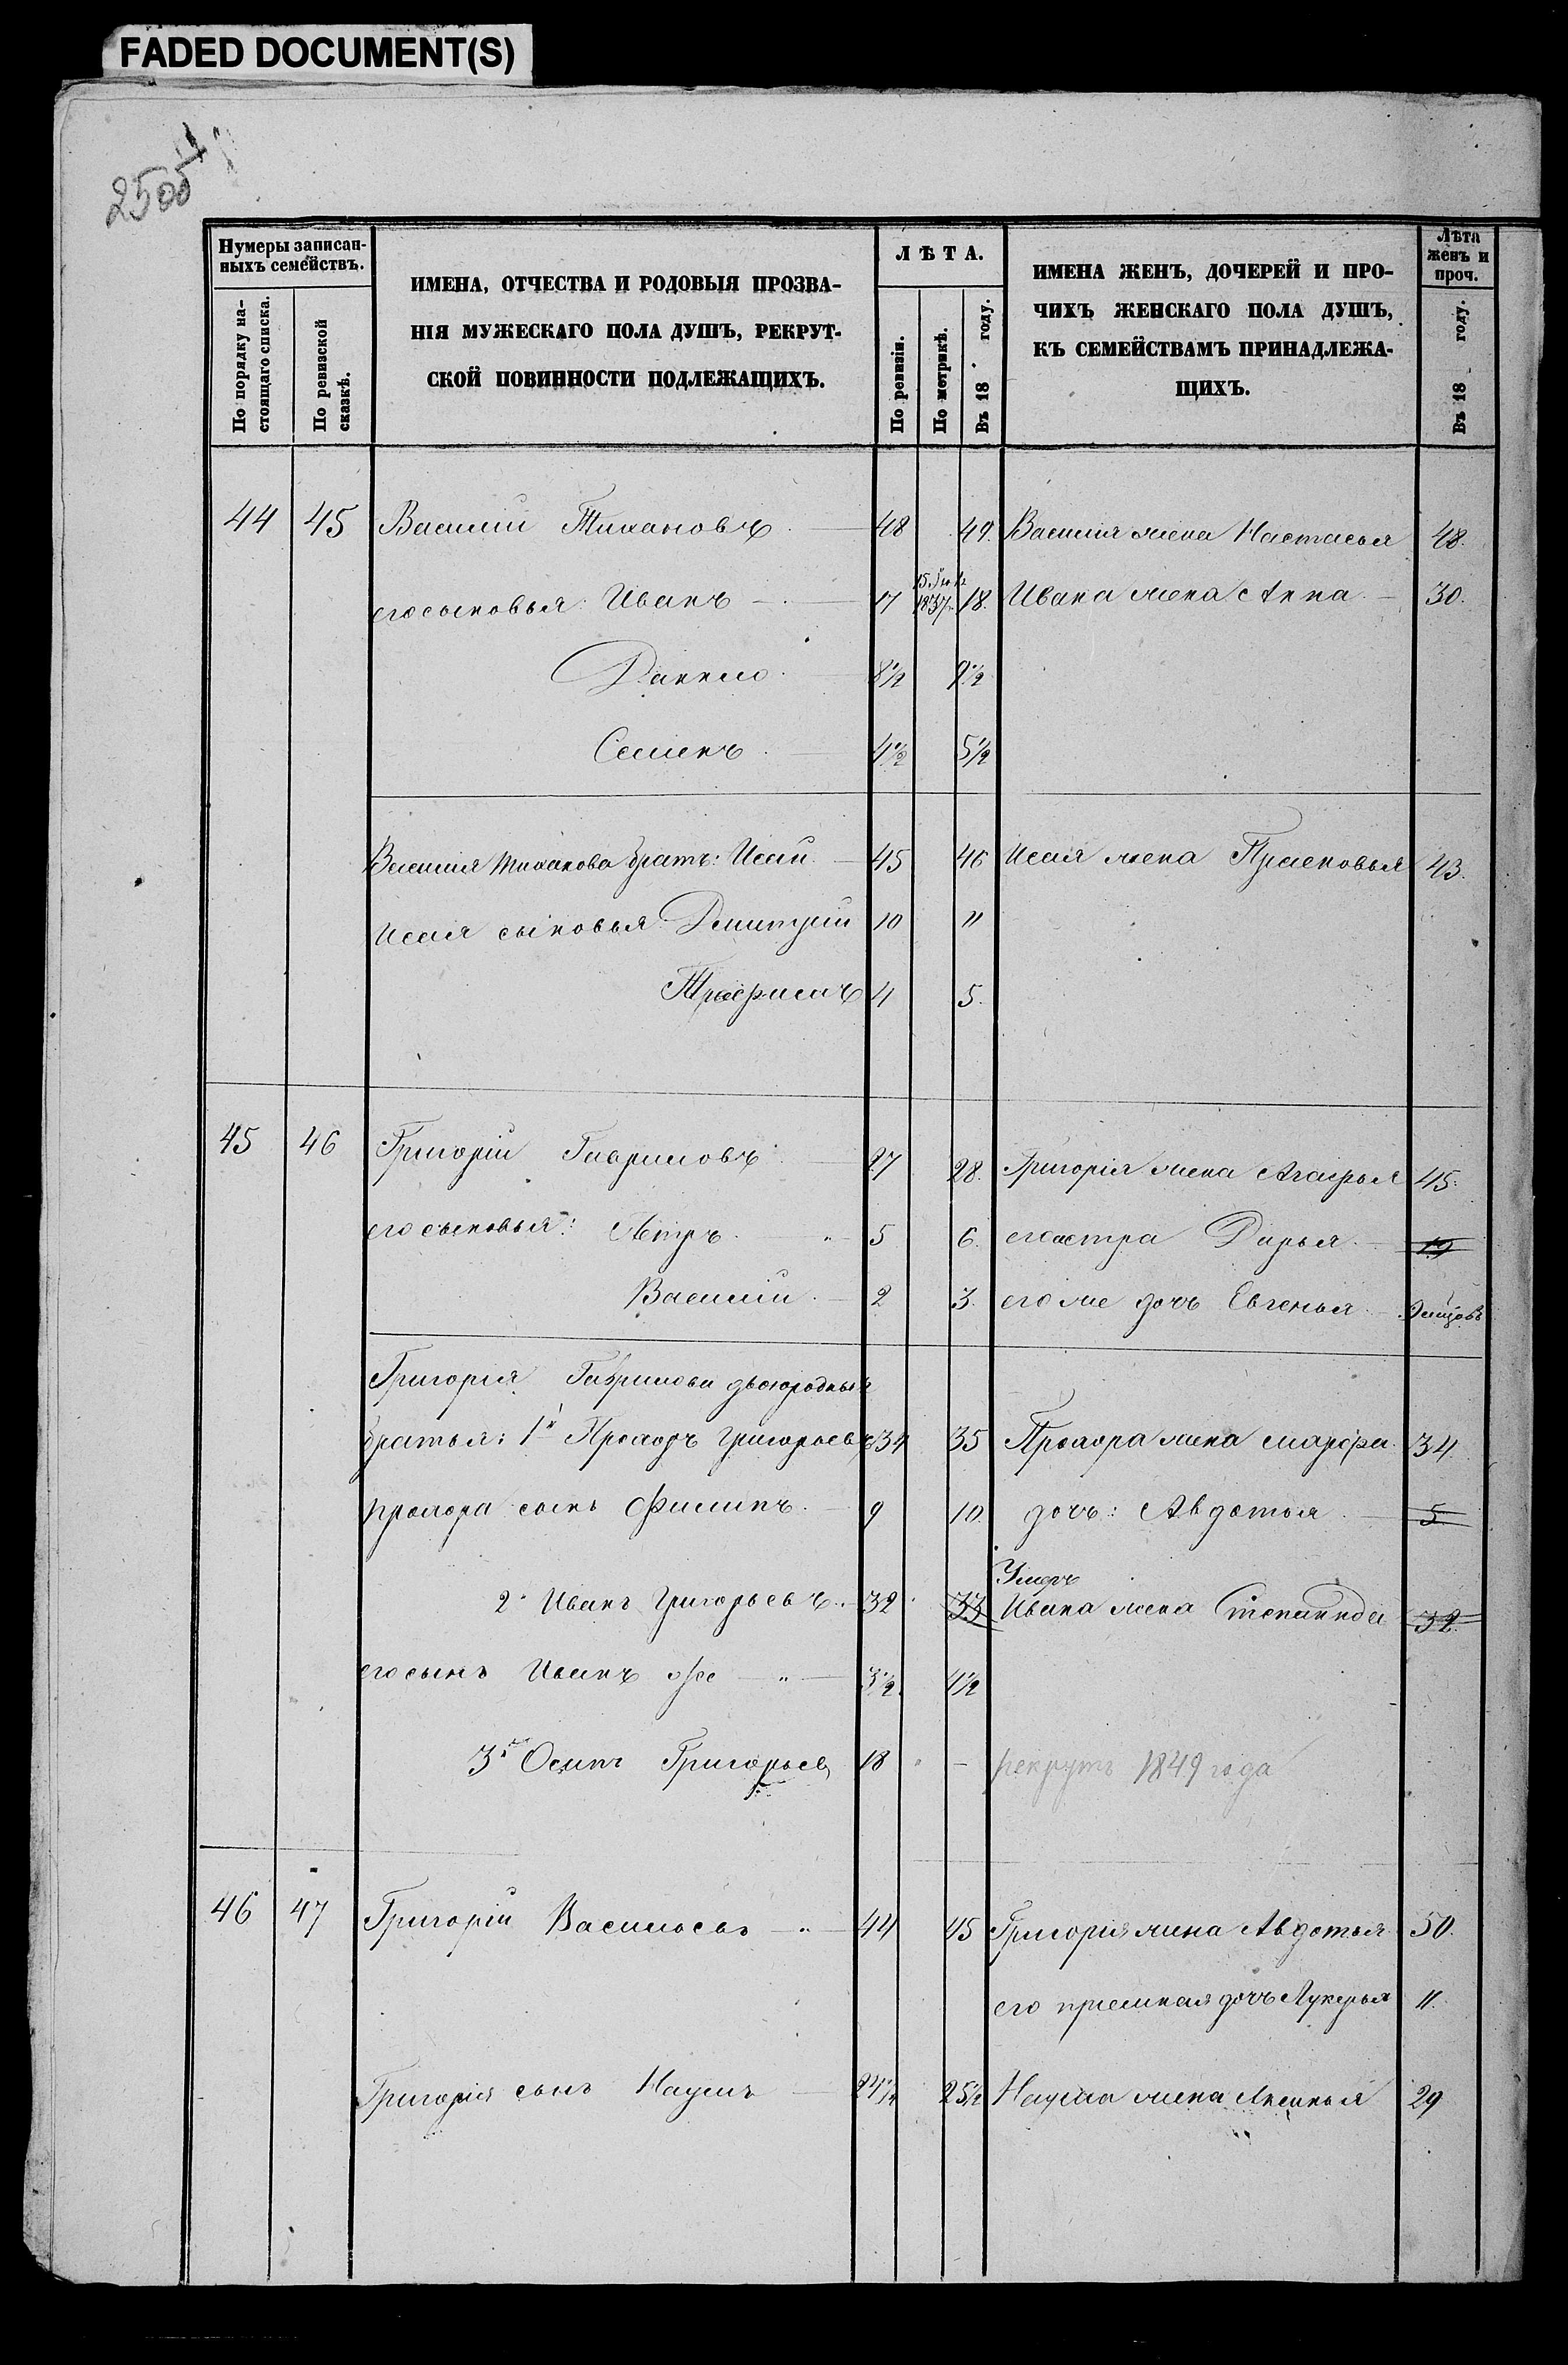 FADED DOCUMENT(S)
Нумеры записан-
ныхъ семействъ.
По порядку на-
стоящаго списка.
По ревизской
сказкѣ.
ИМЕНА, ОТЧЕСТВА И РОДОВЫЯ ПРОЗВА-
НІЯ МУЖЕСКАГО ПОЛА ДУШЪ, РЕКРУТ-
СКОЙ ПОВИННОСТИ ПОДЛЕЖАЩИХЪ.
ЛѢТА.
По ревизіи.
По метрикѣ.
Въ 18 году.
ИМЕНА ЖЕНЪ, ДОЧЕРЕЙ И ПРО-
ЧИХЪ ЖЕНСКАГО ПОЛА ДУШЪ,
КЪ СЕМЕЙСТВАМЪ ПРИНАДЛЕЖА-
ЩИХЪ.
Лѣта
женъ и
проч.
Въ 18 году.
44 45 Василий Тихановъ 48 49. Василия жена Настасья 48.
его сыновья: Иванъ 17 1837 18. Ивана жена Анна 30.
Данило 8½ 9½
Семенъ 4½ 5½
Василия Тиханова братъ: Исай 45 46 Исая жена Прасковья 43.
Исая сыновья Дмитрий 10 11
Трофимъ 4 5.
45 46 Григорій Гавриловъ 27 28. Григорія жена Агафья 45.
его сыновья: Петръ 5 6. его сестра Дарья 19
Василій 2 3. его же дочь Евгенья
Григорія Гаврилова двоюродныя
братья: 1й Прохоръ Григорьевъ 34 35 Прохора жена Марфа 34.
Прохора сынъ Филипъ 9 10. дочь: Авдотья 5.
Умеръ
2. Иванъ Григорьевъ 32 33 Ивана жена Степанида 32.
его сынъ Иванъ же 3½ 4½
3й Осипъ Григорьев 18 - рекрутъ 1849 года
46 47 Григорій Васильевъ 44 45 Григорія жена Авдотья 50.
его приемная дочь Лукерья 11.
Григорія сынъ Наумъ 24½ 25½ Наума жена Аксинья 29